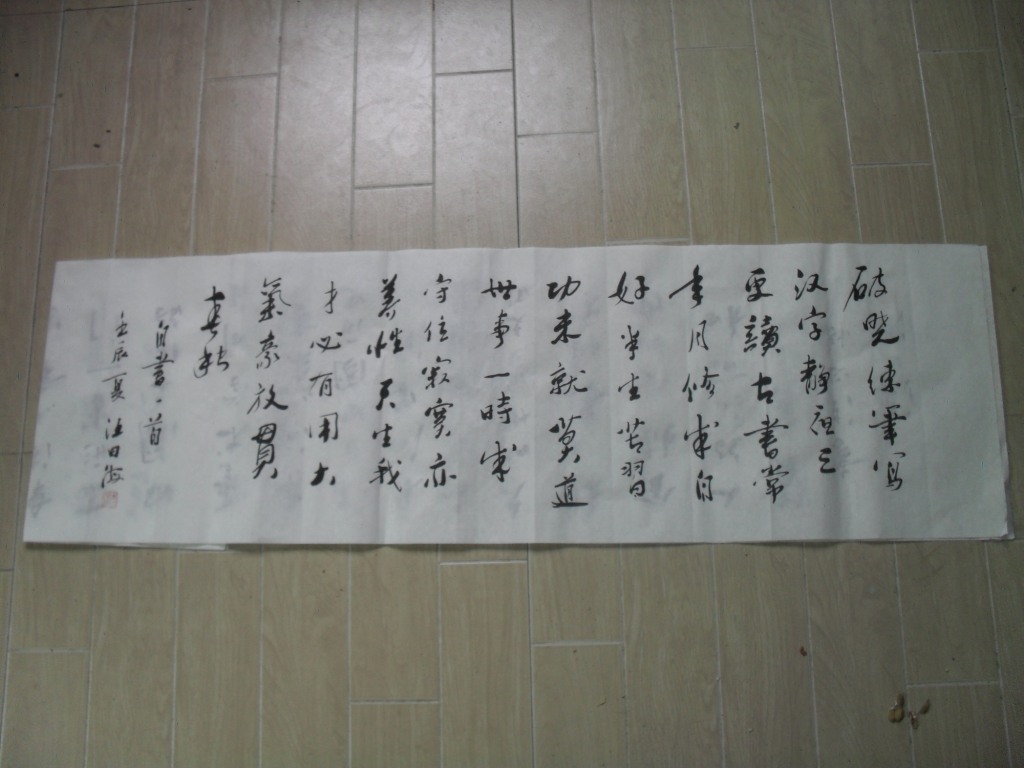 破晓练笔写
汉字静夜三
更读古书常
年月修成自
好半生苦习
功来就莫道
世事一时成
守住寂寞亦
养性天生我
才必有用大
氣豪放贯
春秋
自书一首
壬辰夏 汪日